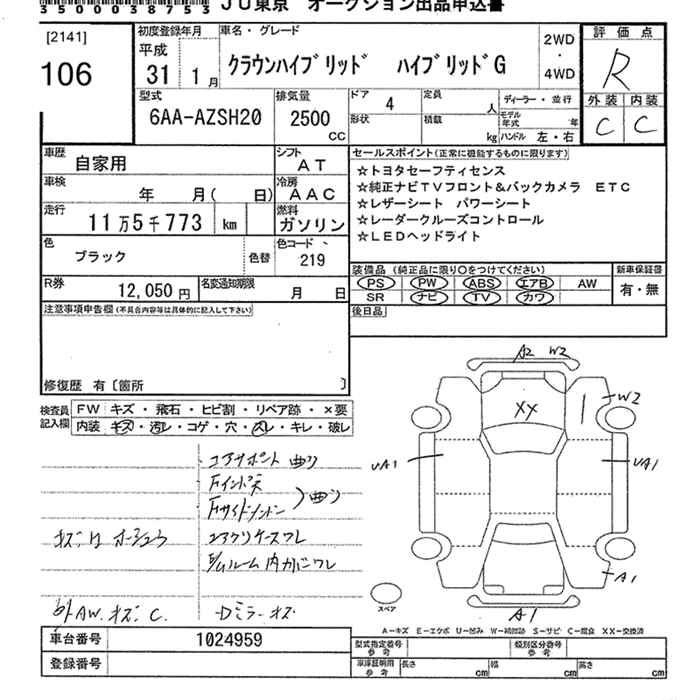 350003 8753 JU東京 オークション出品申込書
[2141]
106
初度登録年月
平成
31 1月
車名・グレード
クラウンハイブリッド ハイブリッドG
2WD
・
4WD
評価点
R
型式
6AA-AZSH20
排気量
2500
CC
ドア 4
形状
定員 人
積載 kg
ディーラー・並行
モデル年式 年
ハンドル 左・右
外装 内装
C C
車歴
自家用
シフト
AT
車検
年 月( 日)
冷房
AAC
走行
11万5千773 km
燃料
ガソリン
色
ブラック
色替
色コード
219
セールスポイント(正常に機能するものに限ります)
☆トヨタセーフティセンス
☆純正ナビTVフロント&バックカメラ ETC
☆レザーシート パワーシート
☆レーダークルーズコントロール
☆LEDヘッドライト
R券
12,050円
名変通知期限
月 日
装備品(純正品に限り○をつけてください)
PS PW ABS エアB AW
SR ナビ TV カワ
新車保証書
有・無
後日品
注意事項申告欄(不具合内容等は具体的に記入して下さい)
修復歴 有〔箇所 〕
検査員
記入欄
FW キズ・飛石・ヒビ割・リペア跡・×要
内装 キズ・汚レ・コゲ・穴・スレ・キレ・破レ
コアサポート 曲り
Fインパネ
Fサイドメンバー
曲り
コアクリケースワレ
外AW.キズC.
Dミラーキズ
A2 W2
XX
W2
UA1
UA1
A1
A1
スペア
A-キズ E-エクボ U-凹み W-補修跡 S-サビ C-腐食 XX-交換済
車台番号 1024959
登録番号
型式指定番号
参考
類別区分番号
参考
車庫証明用
参考
長さ cm 幅 cm 高さ cm